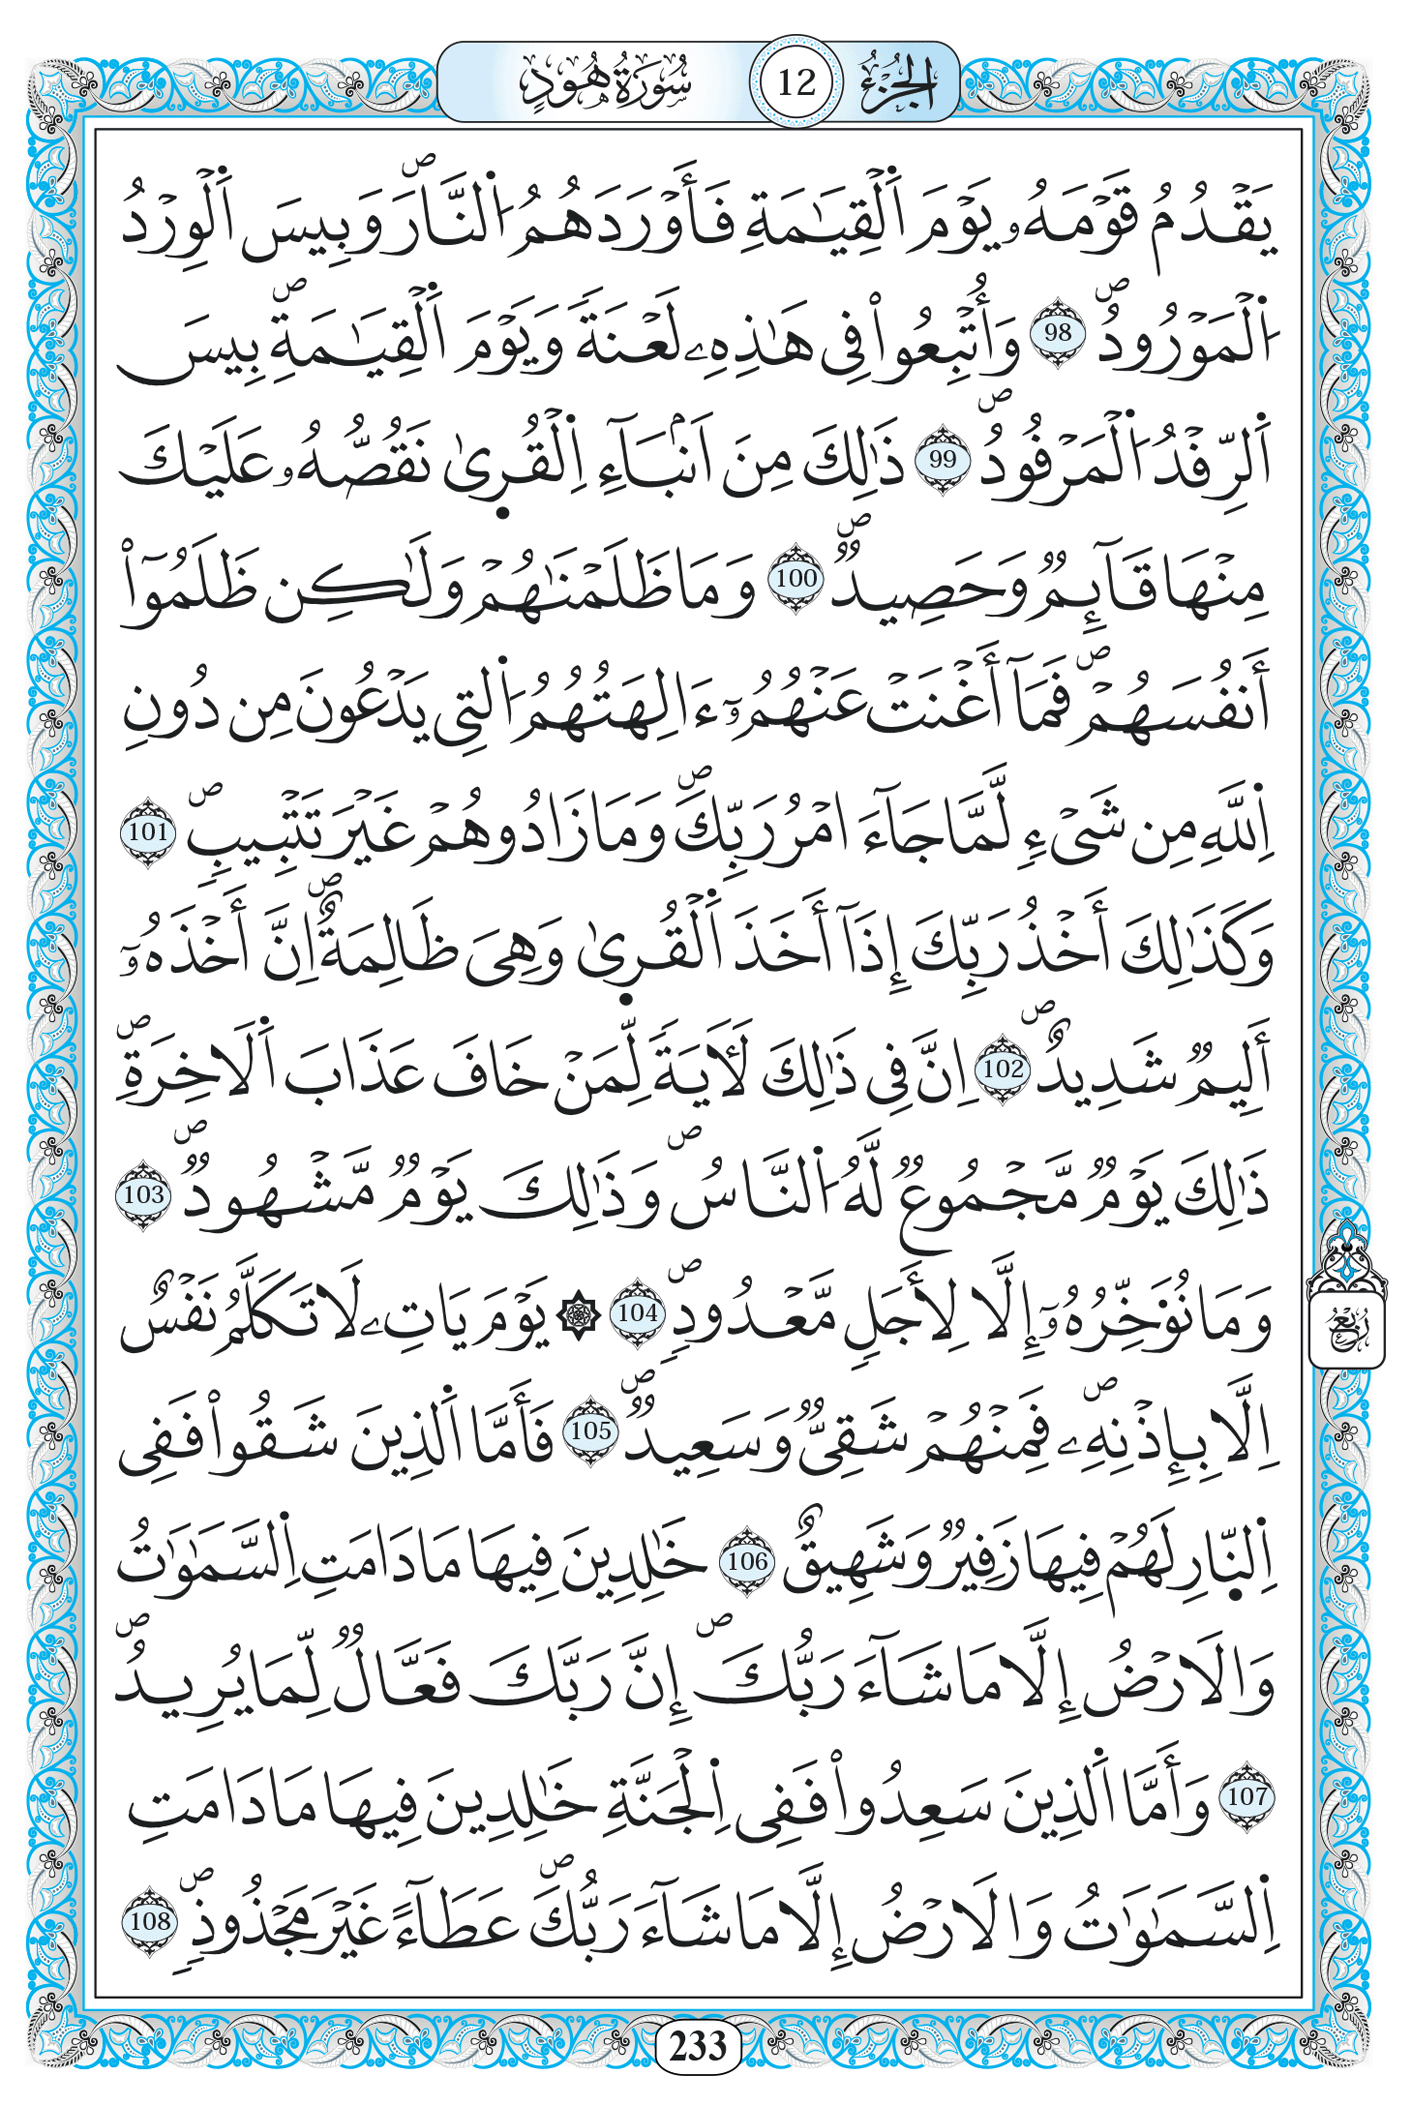 الجزء 12 سورة هود
يَقْدُمُ قَوْمَهُۥ يَوْمَ اَ۬لْقِيَٰمَةِ فَأَوْرَدَهُمُ اُ۬لنَّارَۖ وَبِيسَ اَ۬لْوِرْدُ
اُ۬لْمَوْرُودُۖ 98 وَأُتْبِعُواْ فِى هَٰذِهِۦ لَعْنَةٗ وَيَوْمَ اَ۬لْقِيَٰمَةِۖ بِيسَ
اَ۬لرِّفْدُ اُ۬لْمَرْفُودُۖ 99 ذَٰلِكَ مِنَ اَنۢبَآءِ اِ۬لْقُر۪ىٰ نَقُصُّهُۥ عَلَيْكَ
مِنْهَا قَآئِمٞ وَحَصِيدٞۖ 100 وَمَا ظَلَمْنَٰهُمْ وَلَٰكِن ظَلَمُوٓاْ
أَنفُسَهُمْۖ فَمَآ أَغْنَتْ عَنْهُمُۥٓ ءَالِهَتُهُمُ اُ۬لتِى يَدْعُونَ مِن دُونِ
اِ۬للَّهِ مِن شَىْءٖ لَّمَّا جَآءَ امْرُ رَبِّكَۖ وَمَا زَادُوهُمْ غَيْرَ تَتْبِيبٖۖ 101
وَكَذَٰلِكَ أَخْذُ رَبِّكَ إِذَآ أَخَذَ اَ۬لْقُر۪ىٰ وَهِىَ ظَالِمَةٌۖ اِنَّ أَخْذَهُۥٓ
أَلِيمٞ شَدِيدٌۖ 102 اِنَّ فِى ذَٰلِكَ لَأٓيَةٗ لِّمَنْ خَافَ عَذَابَ اَ۬لَاخِرَةِۖ
ذَٰلِكَ يَوْمٞ مَّجْمُوعٞ لَّهُ اُ۬لنَّاسُۖ وَذَٰلِكَ يَوْمٞ مَّشْهُودٞۖ 103
وَمَا نُؤَخِّرُهُۥٓ إِلَّا لِأَجَلٖ مَّعْدُودٖۖ 104 ۞ يَوْمَ يَاتِۦ لَا تَكَلَّمُ نَفْسٌ
اِلَّا بِإِذْنِهِۦۖ فَمِنْهُمْ شَقِىّٞ وَسَعِيدٞۖ 105 فَأَمَّا اَ۬لذِينَ شَقُواْ فَفِى
اِ۬لنّ۪ارِ لَهُمْ فِيهَا زَفِيرٞ وَشَهِيقٌ 106 خَٰلِدِينَ فِيهَا مَا دَامَتِ اِ۬لسَّمَٰوَٰتُ
وَالَارْضُ إِلَّا مَا شَآءَ رَبُّكَۖ إِنَّ رَبَّكَ فَعَّالٞ لِّمَا يُرِيدُۖ
107 وَأَمَّا اَ۬لذِينَ سَعِدُواْ فَفِى اِ۬لْجَنَّةِ خَٰلِدِينَ فِيهَا مَا دَامَتِ
اِ۬لسَّمَٰوَٰتُ وَالَارْضُ إِلَّا مَا شَآءَ رَبُّكَۖ عَطَآءً غَيْرَ مَجْذُوذٖۖ 108
رُبُع
233